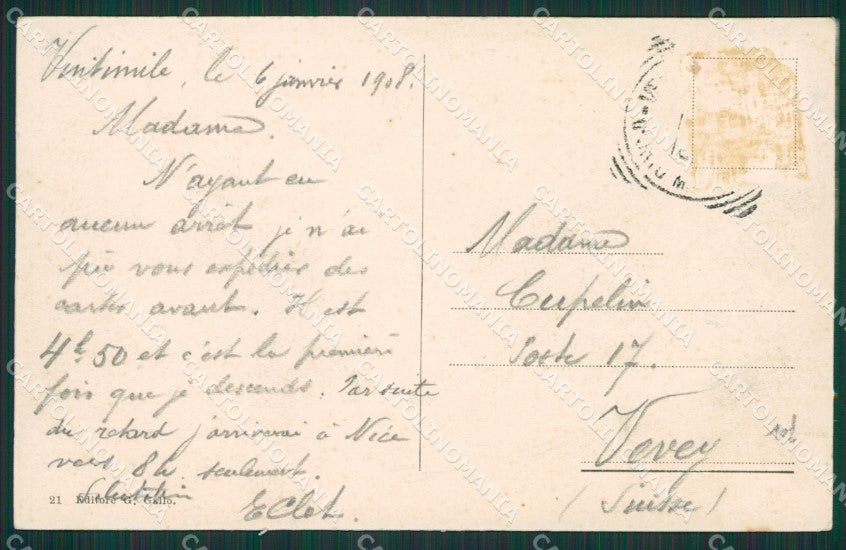 Vintimile, le 6 janvier 1908.
Madame.
N'ayant eu
aucun arrêt je n'ai
pu vous expédier des
cartes avant. Il est
4h 50 et c'est la première
fois que je descends. Par suite
du retard j'arriverai à Nice
vers 8h seulement.
E Clot.
21 Editore G. Gallo.
Madame
Cupelin
Poste 17.
Vevey
(Suisse)
CARTOLINOMANIA